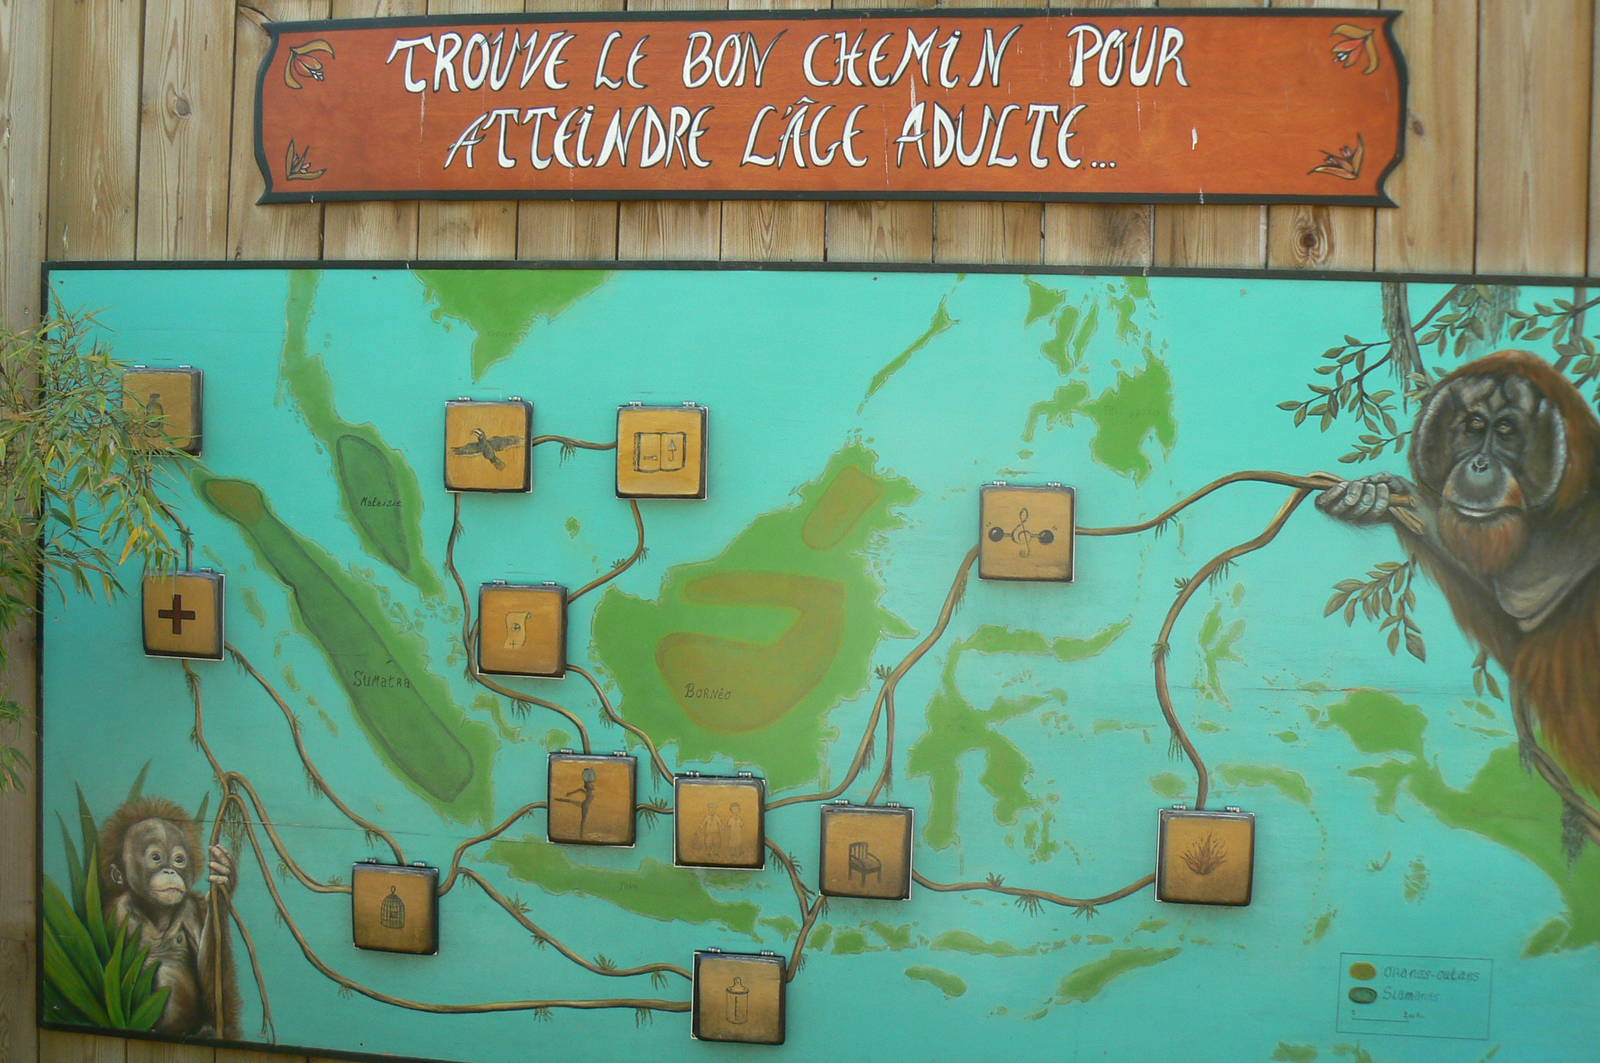 TROUVE LE BON CHEMIN POUR
ATTEINDRE L'ÂGE ADULTE...
Malaisie
SUMATRA
BORNÉO
Java
Orangs-outans
Siamangs